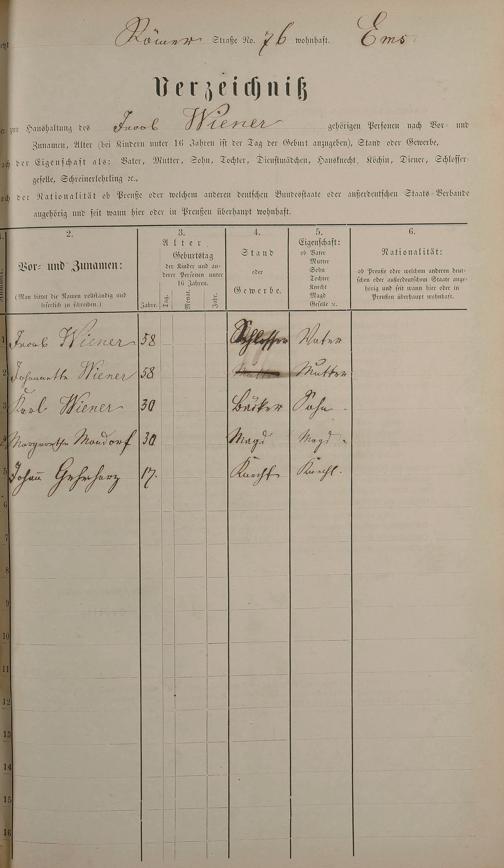 Römer Straße No. 76 wohnhaft. Ems
Verzeichniß
zur Haushaltung des Jacob Wiener gehörigen Personen nach Vor- und
Zunamen, Alter (bei Kindern unter 16 Jahren ist der Tag der Geburt anzugeben), Stand oder Gewerbe,
der Eigenschaft als: Vater, Mutter, Sohn, Tochter, Dienstmädchen, Hausknecht, Köchin, Diener, Schlosser-
geselle, Schreinerlehrling ꝛc.,
der Nationalität ob Preuße oder welchem anderen deutschen Bundesstaate oder außerdeutschen Staats-Verbande
angehörig und seit wann hier oder in Preußen überhaupt wohnhaft.
2.
Vor- und Zunamen:
(Man bittet die Namen vollständig und
leserlich zu schreiben.)
3.
Alter
Geburtstag
der Kinder und an-
derer Personen unter
16 Jahren.
Jahre. Tag. Monat. Jahr.
4.
Stand
oder
Gewerbe.
5.
Eigenschaft:
ob Vater
Mutter
Sohn
Tochter
Knecht
Magd
Geselle ꝛc.
6.
Nationalität:
ob Preuße oder welchem anderen deut-
schen oder außerdeutschen Staate ange-
hörig und seit wann hier oder in
Preußen überhaupt wohnhaft.
1 Jacob Wiener 58 Schlosser Vater
2 Johannette Wiener 58 Mutter
3 Karl Wiener 30 Bäcker Sohn
4 Margarethe Mondorf 30 Magd Magd
5 Johann 17. Knecht Knecht.
6
7
8
9
10
11
12
13
14
15
16